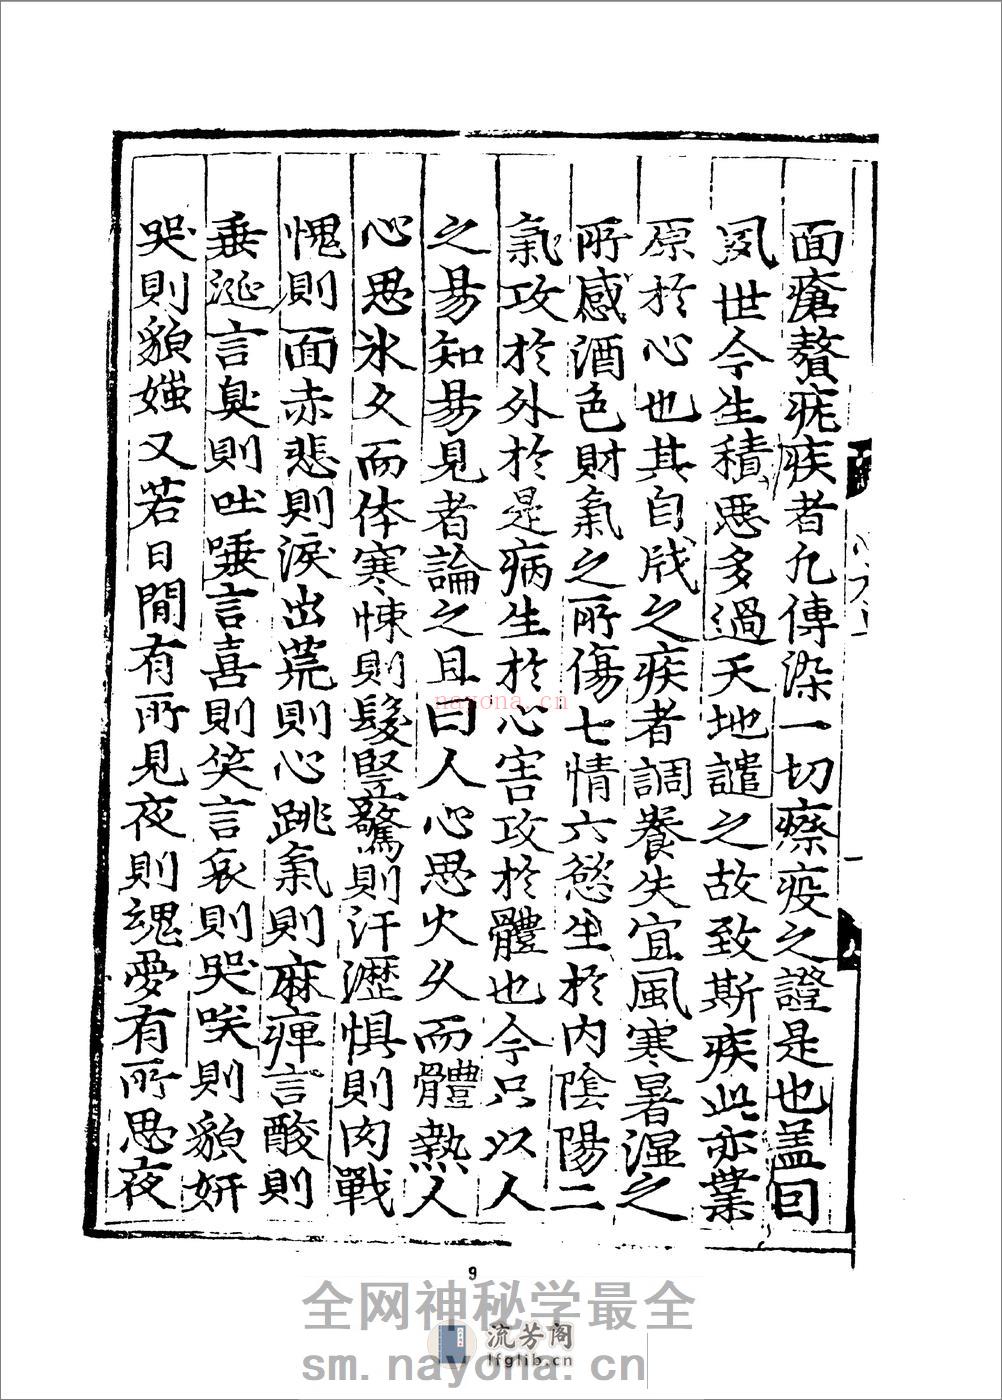 面瘡贅疣疾者凢傳染一切瘵疫之證是也盖曰
夙世今生積惡多過天地譴之故致斯疾此亦業
原於心也其自戕之疾者調養失宜風寒暑濕之
所感酒色財氣之所傷七情六慾生於内陰陽二
氣攻於外於是病生於心害攻於體也今只以人
之易知易見者論之且曰人心思火久而體熱人
心思氷久而体寒悚則髮竪驚則汗瀝惧則肉戰
愧則面赤悲則淚出荒則心跳氣則麻痺言酸則
垂涎言臭則吐唾言喜則笑言哀則哭咲則貌妍
哭則貌媸又若日間有所見夜則魂夢有所思夜
9
nayona.cn
全网神秘学最全
流芳阁
lfglib.cn
sm.nayona.cn